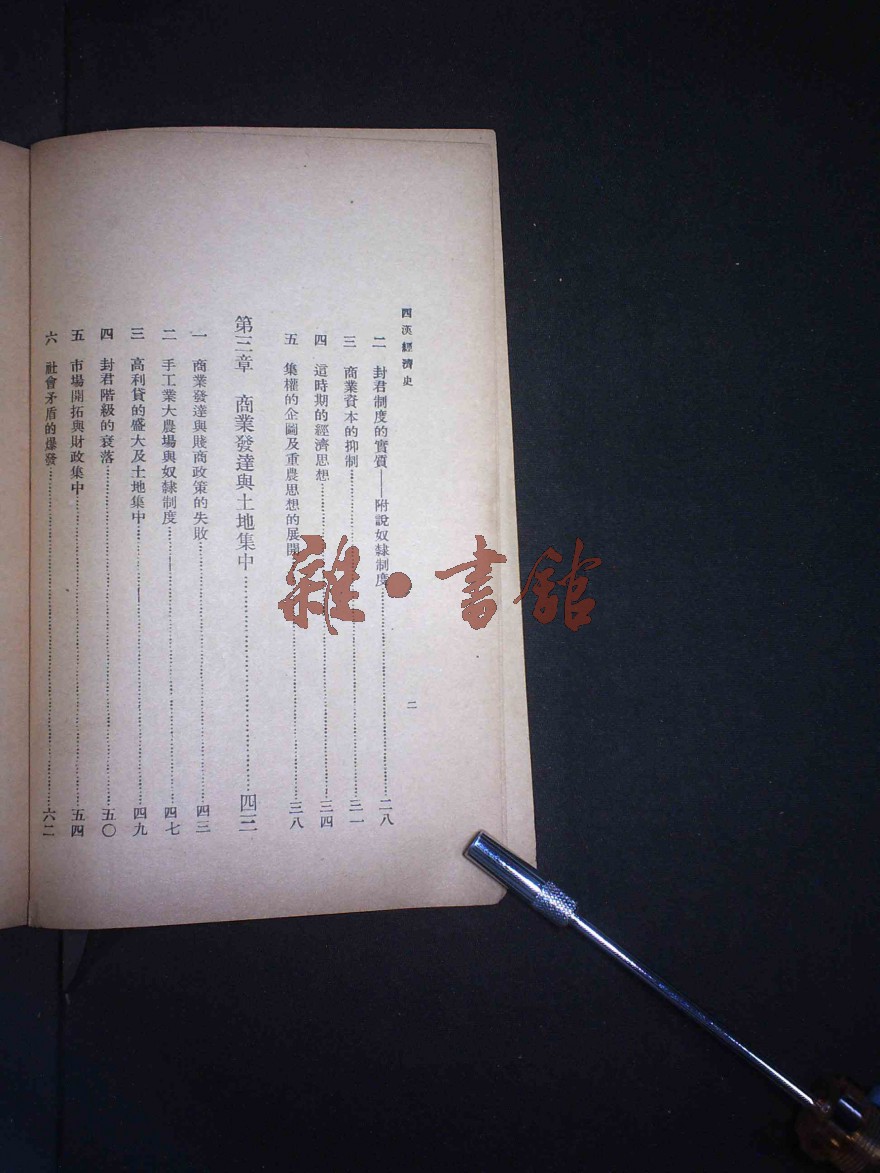 西漢經濟史
二　封君制度的實質——附說奴隸制度……二八
三　商業資本的抑制……三一
四　這時期的經濟思想……三四
五　集權的企圖及重農思想的展開……三八
第三章　商業發達與土地集中……四三
一　商業發達與賤商政策的失敗……四三
二　手工業大農場與奴隸制度……四七
三　高利貸的盛大及土地集中……四九
四　封君階級的衰落……五〇
五　市場開拓與財政集中……五四
六　社會矛盾的爆發……六二
二
雜·書館